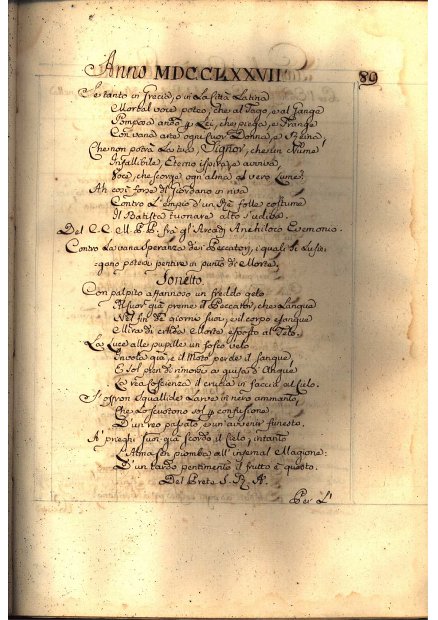 Anno MDCCLXXVII
89
Se tanto in Grecia, o in la Città Latina
Mortal voce poteo, che al Tago, e al Gange
Pomposa andò, e Lei, che piega, e frange
Con vana arte ogni Cuor Donna, e
Che non potrà la tua, Signor, che un Nume
Infallibile, Eterno ispira, e avviva
Voce, che scorge ogn'alma al vero Lume.
Ah così forse di Giordano in riva
Contro l'empio d'un Rè folle costume
Il Batista tuonare alto s'udiva.
Del C. C. all. P. P. fra gl'Arcadi Archiloco Evemonio.
Contro la vana Speranza dei Peccatori, i quali si Lusin-
gano potersi pentire in punto di Morte.
Sonetto.
Con palpito affannoso un freddo gelo
Il fuor già preme il Peccator, che Langue
Nel fin de giorni suoi, e il corpo esangue
Mira di cruda Morte esposto al Telo.
La Luce alle pupille un fosco velo
Invola già, e il Moto perde il sangue,
E sol pien di rimorsi a guisa d'Angue
La rea Coscienza il crucia in faccia al Cielo.
S'offron Squallide Larve in nero ammanto,
Che Lo scuotono sol, e confusione
D'un reo passato, e un avvenir funesto.
A' prieghi suoi già sordo il Cielo, intanto
L'Alma sen piomba all'infernal Magione:
D'un tardo pentimento il frutto è questo.
Del Prete S. R. A.
Per L'